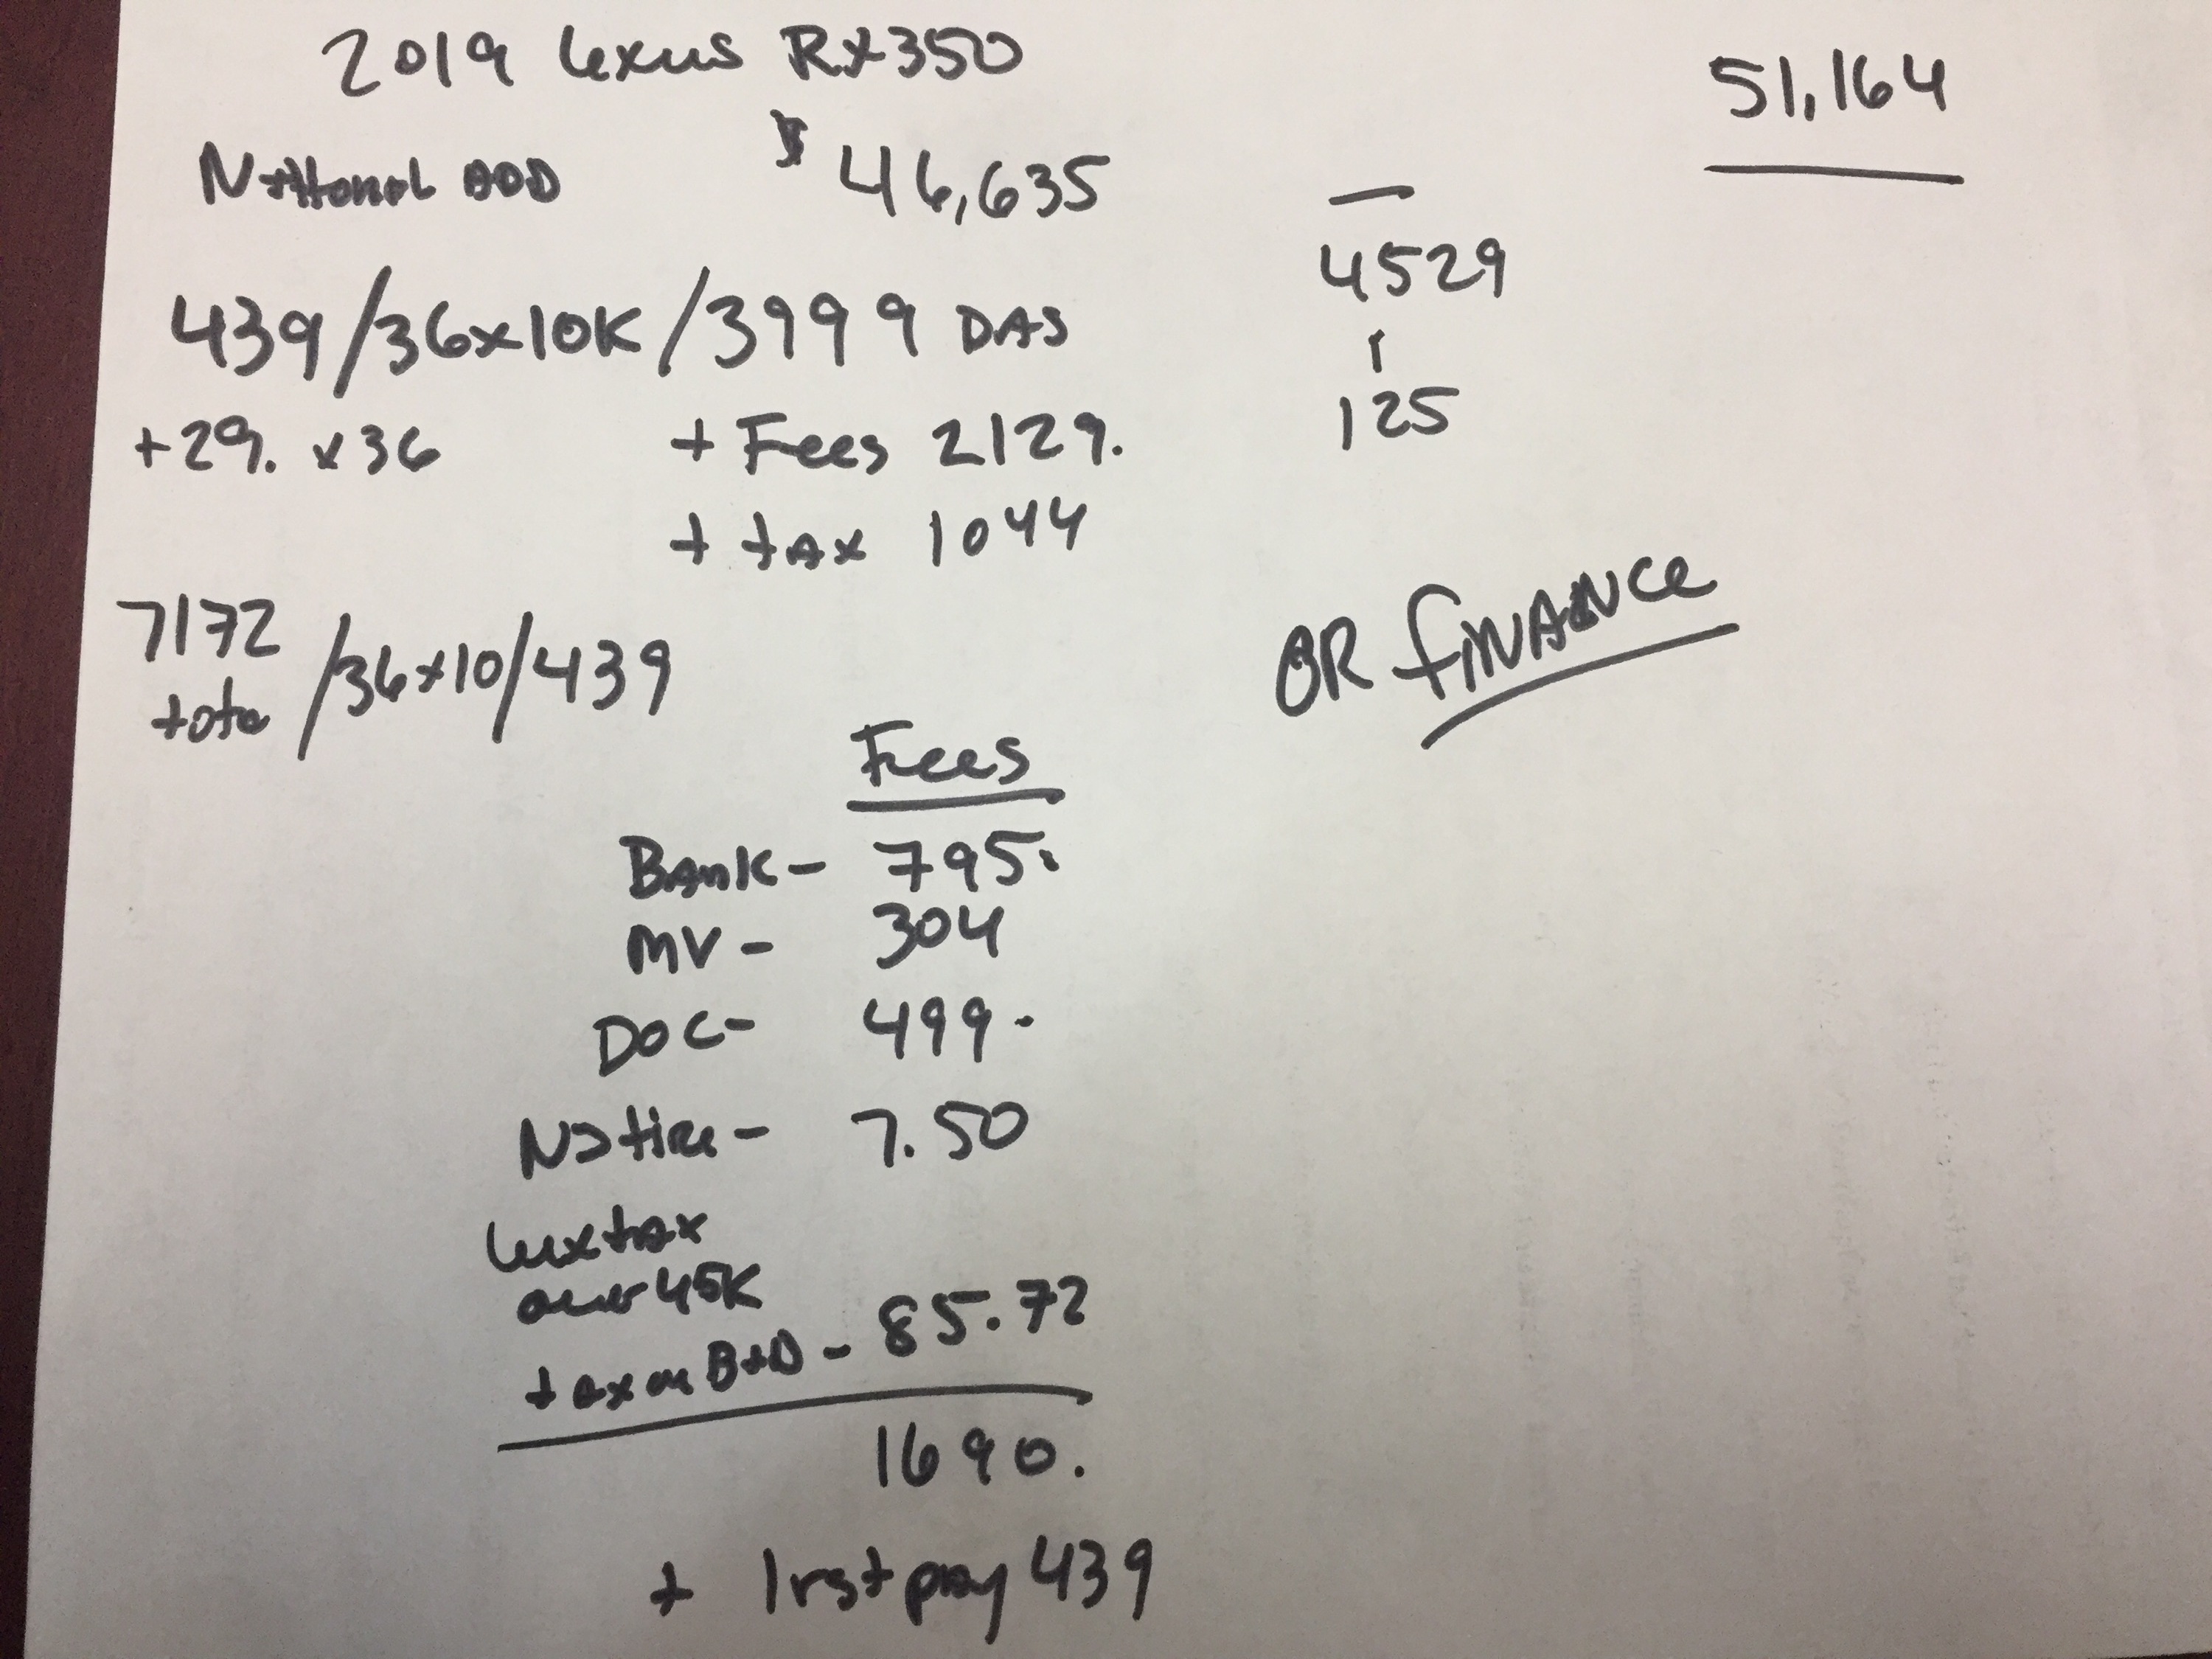 2019 Lexus RX350
51,164
National ADD $46,635
—
4529
439/36x10K/3999 DAS
125
+29. x36
+ Fees 2129.
+ tax 1044
OR FINANCE
7172 /36x10/439
tota
Fees
Bank- 795.
MV- 304
DOC- 499-
NJ tire- 7.50
Lux tax
over 45K
tax on B+D - 85.72
1690.
+ 1rst pay 439